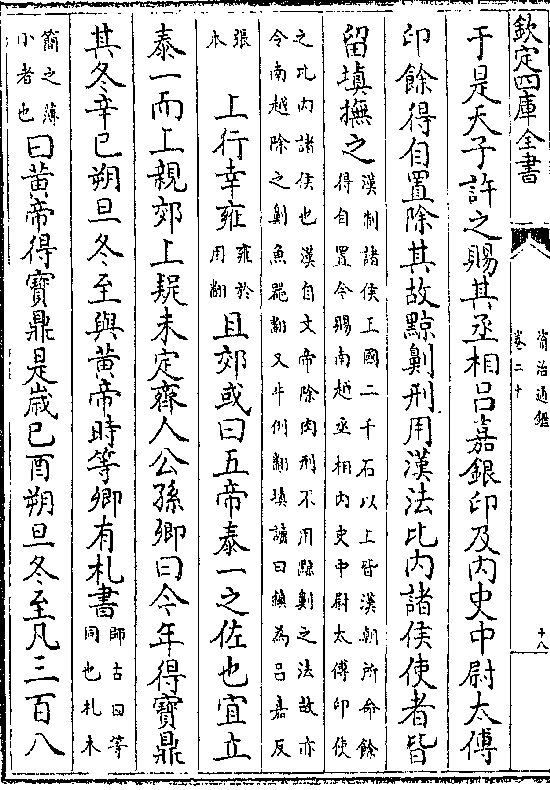 欽定四庫全書
資治通鑑
卷二十
十八
于是天子許之賜其丞相吕嘉銀印及内史中尉太傅
印餘得自置除其故黥劓刑用漢法比内諸侯使者皆
留填撫之
漢制諸侯王國二千石以上皆漢朝所命餘
得自置今賜南越丞相内史中尉太傅印使
之比内諸侯也漢自文帝除肉刑不用黥劓之法故亦
令南越除之劓魚器翻又牛例翻填讀曰鎮為吕嘉反
張
本
上行幸雍
雍於
用翻
且郊或曰五帝泰一之佐也宜立
泰一而上親郊上疑未定齊人公孫卿曰今年得寳鼎
其冬辛巳朔旦冬至與黄帝時等卿有札書
師古曰等
同也札木
簡之薄
小者也
曰黄帝得寳鼎是歲已酉朔旦冬至凡三百八